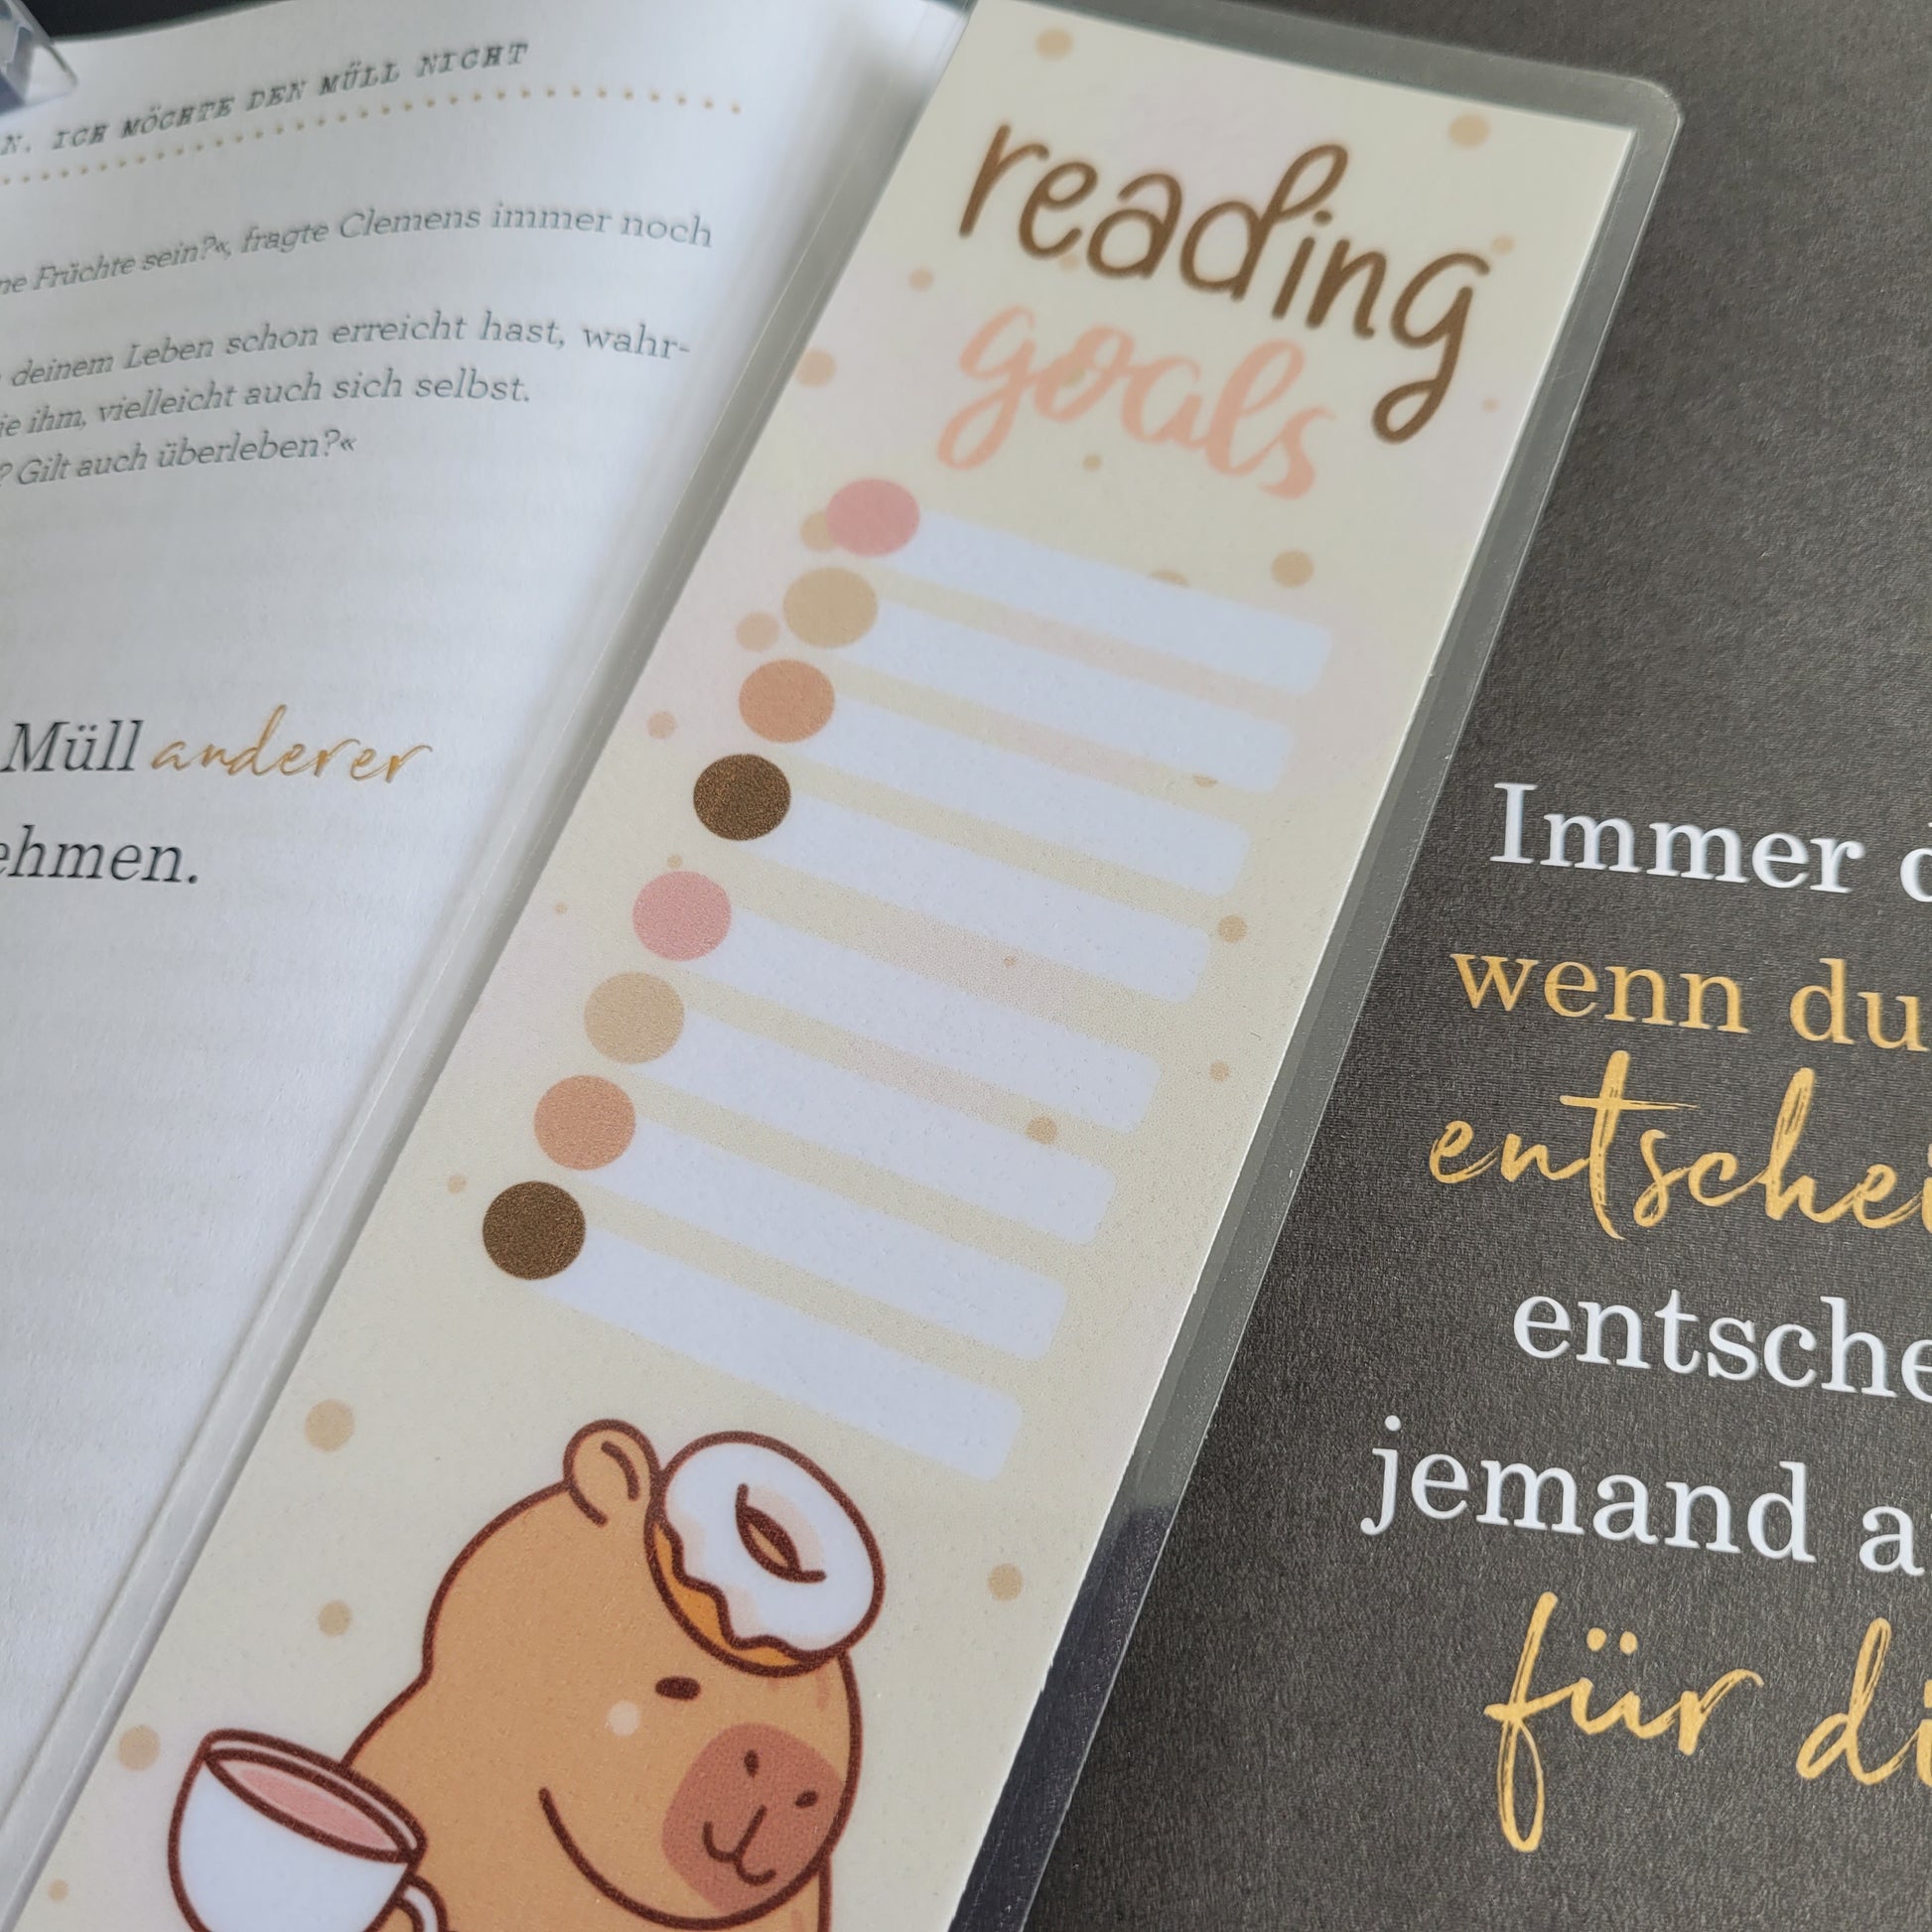 N. ICH MÖCHTE DEN MÜLL NICHT
Früchte sein?«, fragte Clemens immer noch
deinem Leben schon erreicht hast, wahr-
ihm, vielleicht auch sich selbst.
? Gilt auch überleben?«
Müll anderer
ehmen.
reading
goals
Immer
wenn du
entschei
entsche
jemand a
für di